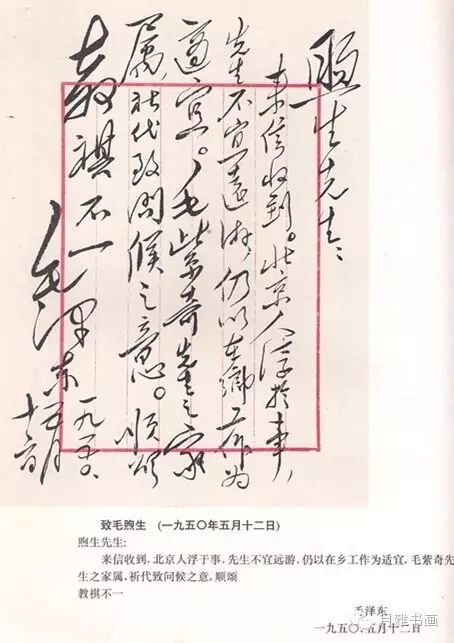 煦生先生：
来信收到。北京人浮於事，
先生不宜遠游，仍以在鄉工作为
適宜。毛紫奇先生之家
属，祈代致问候之意。顺颂
教祺不一
毛泽东
一九五〇、五月
十二日
致毛煦生 （一九五〇年五月十二日）
煦生先生：
来信收到。北京人浮于事，先生不宜远游，仍以在乡工作为适宜。毛紫奇先
生之家属，祈代致问候之意。顺颂
教祺不一
毛泽东
一九五〇、五月十二日
月雅书画